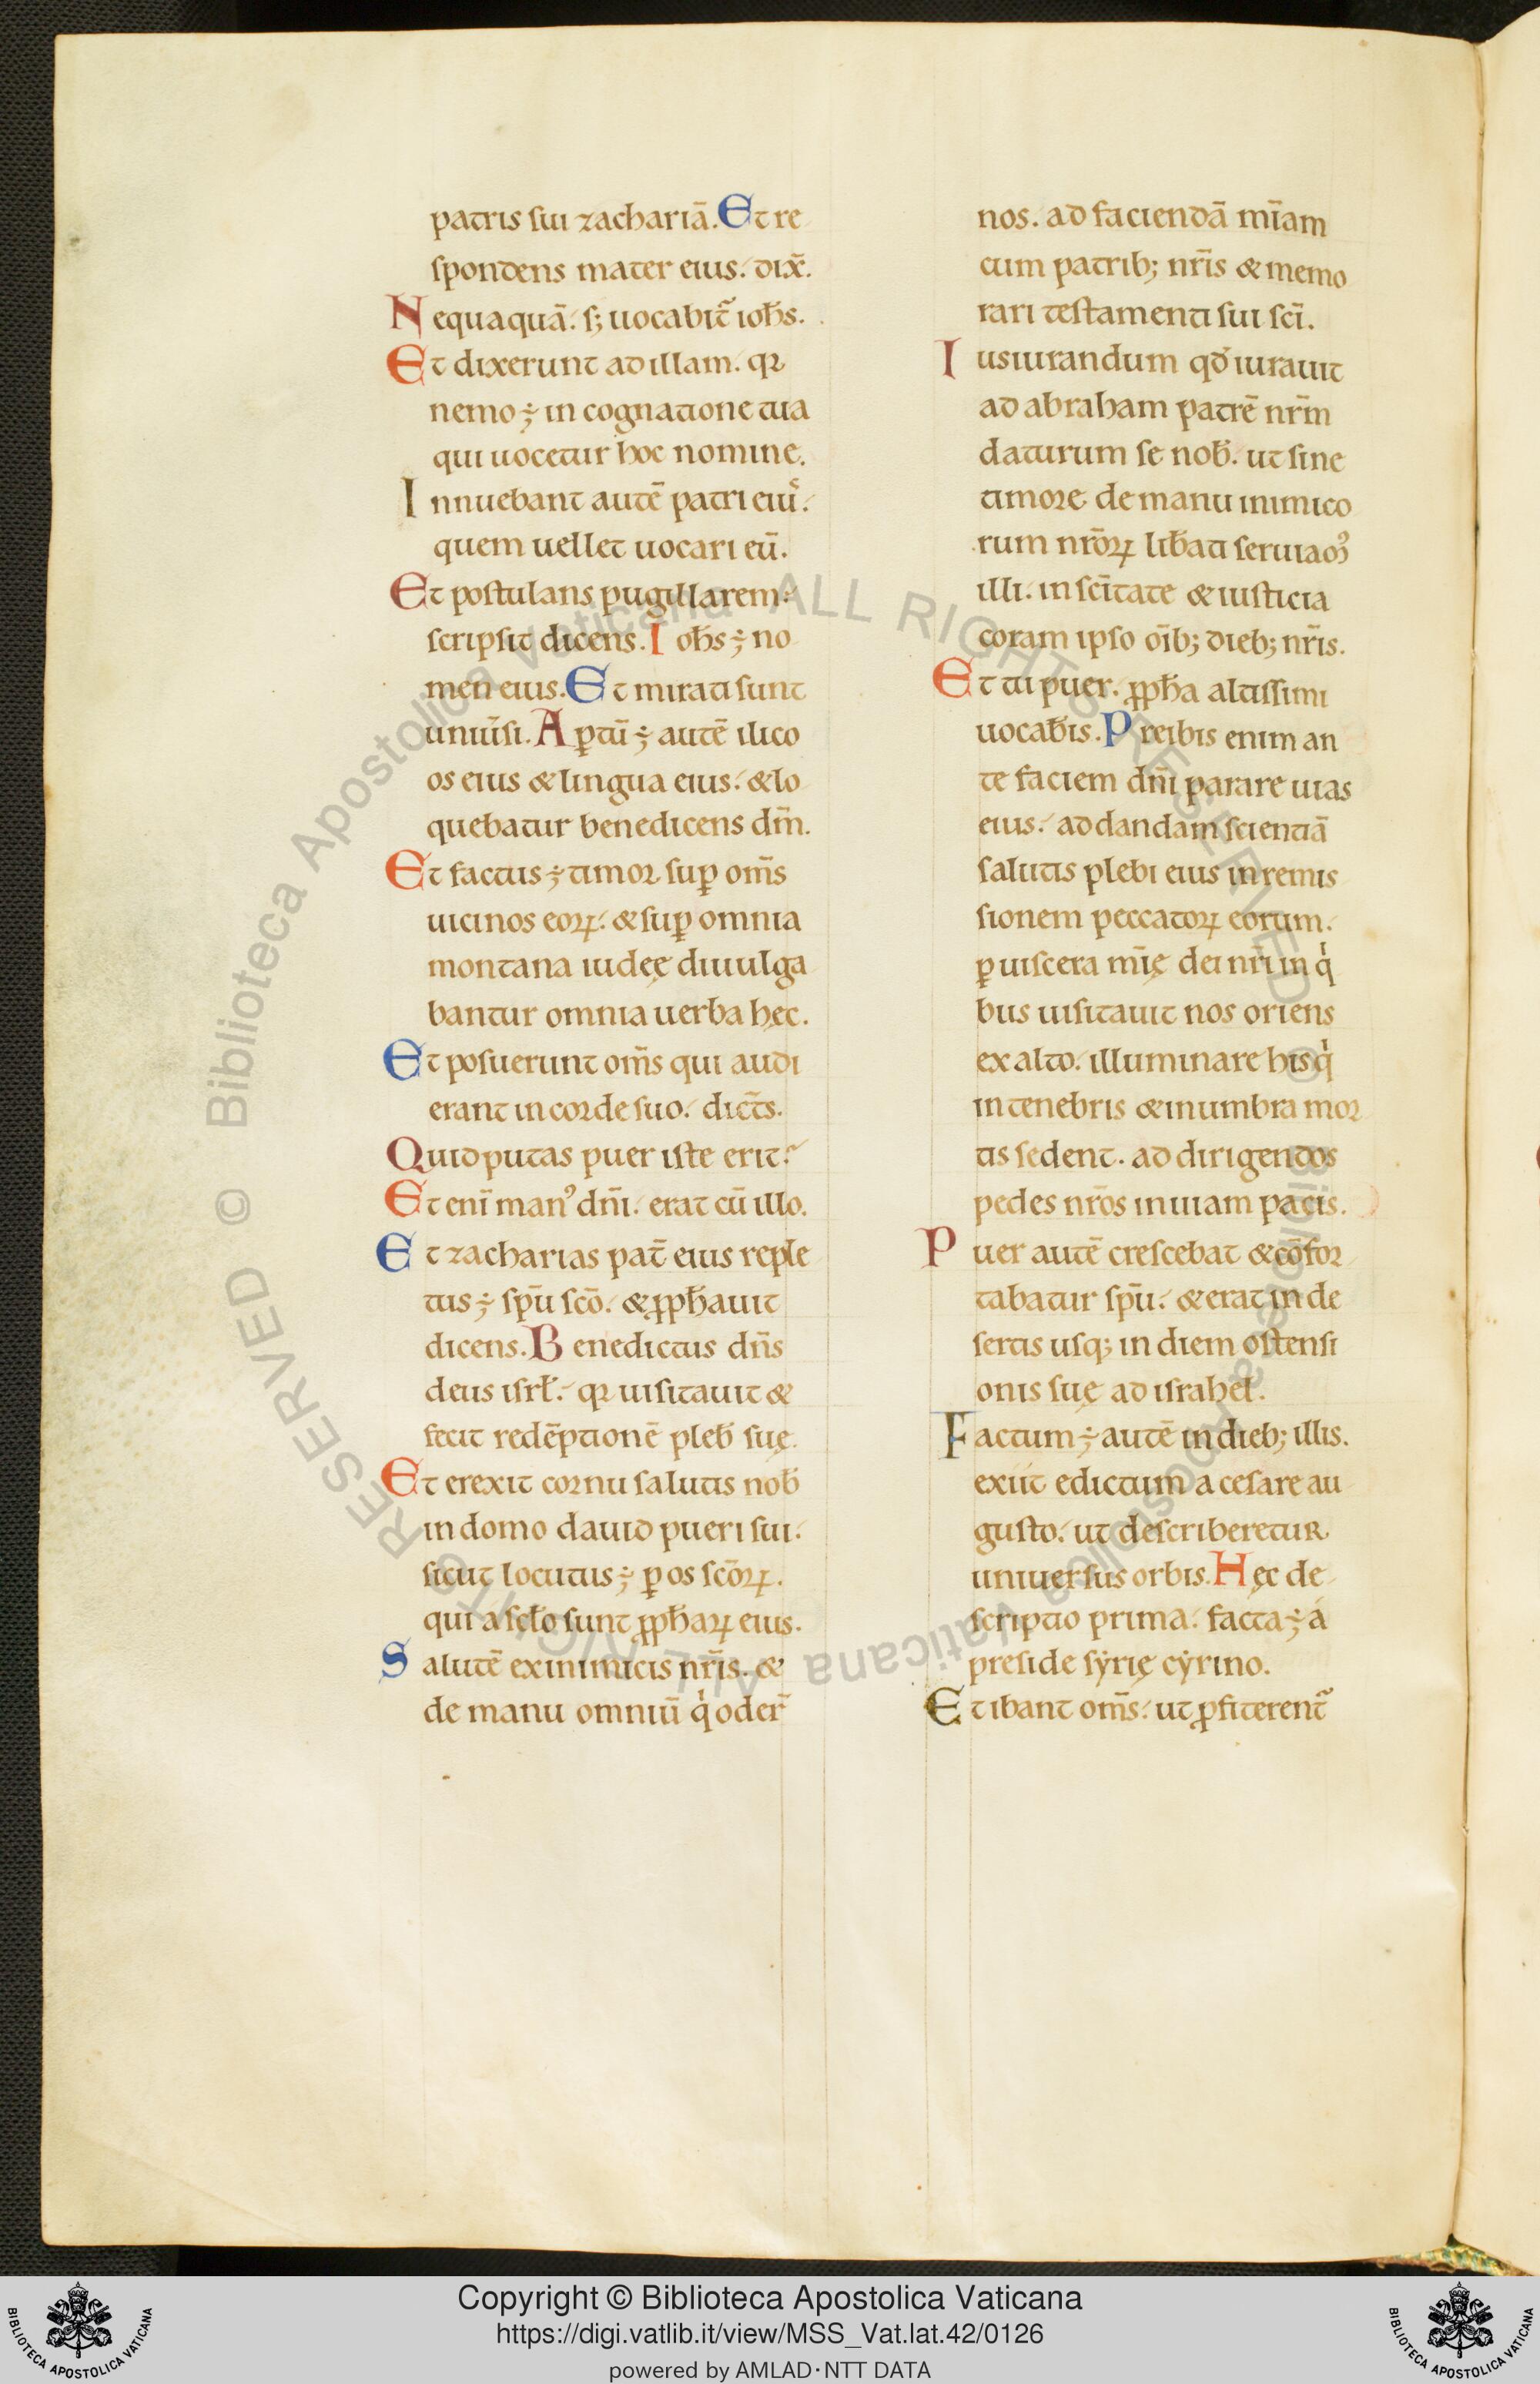 patris sui zachariā. Et re
spondens mater eius. dix̄.
Nequaquā. s; uocabit̄ ioh̄s.
Et dixerunt ad illam. qꝛ
nemo ÷ in cognatione tua
qui uocetur hoc nomine.
Innuebant autē patri eiuᷤ.
quem uellet uocari eū.
Et postulans pugillarem.
scripsit dicens. Ioh̄s ÷ no
men eius. Et mirati sunt
uniūsi. Aꝑtū ÷ autē ilico
os eius & lingua eius. & lo
quebatur benedicens dm̄.
Et factus ÷ timor suꝑ om̄s
uicinos eoꝝ. & suꝑ omnia
montana iudeę diuulga
bantur omnia uerba hęc.
Et posuerunt om̄s qui audi
erant in corde suo. dict̄s.
Quid putas puer iste erit?
Et eni man᾿ dn̄i. erat cū illo.
Et zacharias pat̄ eius reple
tus ÷ spū scō. & ꝓph̄auit
dicens. Benedictus dn̄s
deus isrł. qꝛ uisitauit &
fecit redēptionē pleb̄ suę.
Et erexit cornu salutis nob̄
in domo dauid pueri sui.
sicut locutus ÷ ꝑ os scōꝝ.
qui a sclo sunt ꝓph̄aꝝ eius.
Salutē ex inimicis nr̄is. &
de manu omniū qͥ oder̄
nos. ad faciendā mīam
cum patrib; nr̄is & memo
rari testamenti sui scī.
Iusiurandum qd̄ iurauit
ad abraham patrē nrm̄
daturum se nob̄. ut sine
timore de manu inimico
rum nrōꝝ lib̄ati seruiam᾿
illi. in scītate & iusticia
coram ipso oīb; dieb; nr̄is.
Et tu puer. ꝓph̄a altissimi
uocab̄is. Preibis enim an
te faciem dn̄i parare uias
eius. ad dandam scientiā
salutis plebi eius in remis
sionem peccatoꝝ eorum.
ꝑ uiscera mīę dei nr̄i in qͥ
bus uisitauit nos oriens
ex alto. illuminare his qͥ
in tenebris & in umbra mor
tis sedent. ad dirigendos
pedes nrōs in uiam pacis.
Puer autē crescebat & cōfor
tabatur spū. & erat in de
sertis usq; in diem ostensi
onis suę ad israhel.
Factum ÷ autē in dieb; illis.
exiit edictum a cesare au
gusto. ut describeretur
uniuersus orbis. Hęc de
scriptio prima. facta ÷ á
preside sẏrię cẏrino.
Et ibant om̄s. ut ꝓfiterent̄
© Biblioteca Apostolica Vaticana ALL RIGHTS RESERVED © Biblioteca Apostolica Vaticana ALL RIGHTS RESERVED
Copyright © Biblioteca Apostolica Vaticana
https://digi.vatlib.it/view/MSS_Vat.lat.42/0126
powered by AMLAD·NTT DATA
BIBLIOTECA APOSTOLICA VATICANA
BIBLIOTECA APOSTOLICA VATICANA